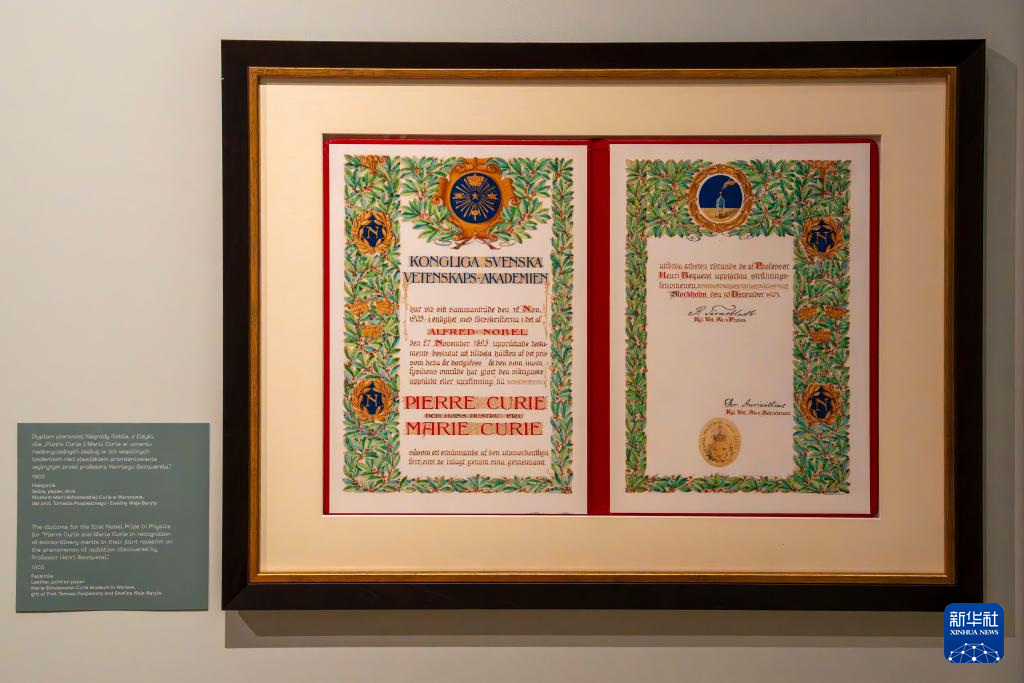 KONGLIGA SVENSKA
VETENSKAPS-AKADEMIEN
har vid sitt sammanträde den 12 Nov.
1903 i enlighet med föreskrifterna i det af
ALFRED NOBEL
den 27 November 1895 upprättade testa-
mente beslutat att tilldela hälften af det pris
som detta år bortgifves åt den som inom
fysikens område har gjort den viktigaste
upptäckt eller uppfinning till
PIERRE CURIE
OCH HANS HUSTRU FRU
MARIE CURIE
såsom ett erkännande af den utomordentliga
förtjenst de inlagt genom sina gemensamt
utförda arbeten rörande de af Professor
Henri Becquerel upptäckta strålnings-
fenomenen.
Stockholm den 10 December 1903.
Kgl. Vet. Akas Præses
Kgl. Vet. Akas Sekreterare
N
N
N
N
Dyplom pierwszej Nagrody Nobla, z fizyki,
dla „Pierre Curie i Marii Curie w uznaniu
nadzwyczajnych zasług w ich wspólnych
badaniach nad zjawiskiem promieniowania
wykrytym przez profesora Henriego Becquerela."
1903
Faksymile
Skóra, papier, druk
Muzeum Marii Skłodowskiej-Curie w Warszawie,
dar prof. Tomasza Pospiesznego i Eweliny Wajs-Baryły
The diploma for the first Nobel Prize in Physics
for "Pierre Curie and Marie Curie in recognition
of extraordinary merits in their joint research on
the phenomenon of radiation discovered by
Professor Henri Becquerel."
1903
Facsimile
Leather, print on paper
Maria Skłodowska-Curie Museum in Warsaw,
gift of Prof. Tomasz Pospieszny and Ewelina Wajs-Baryła
新华社
XINHUA NEWS